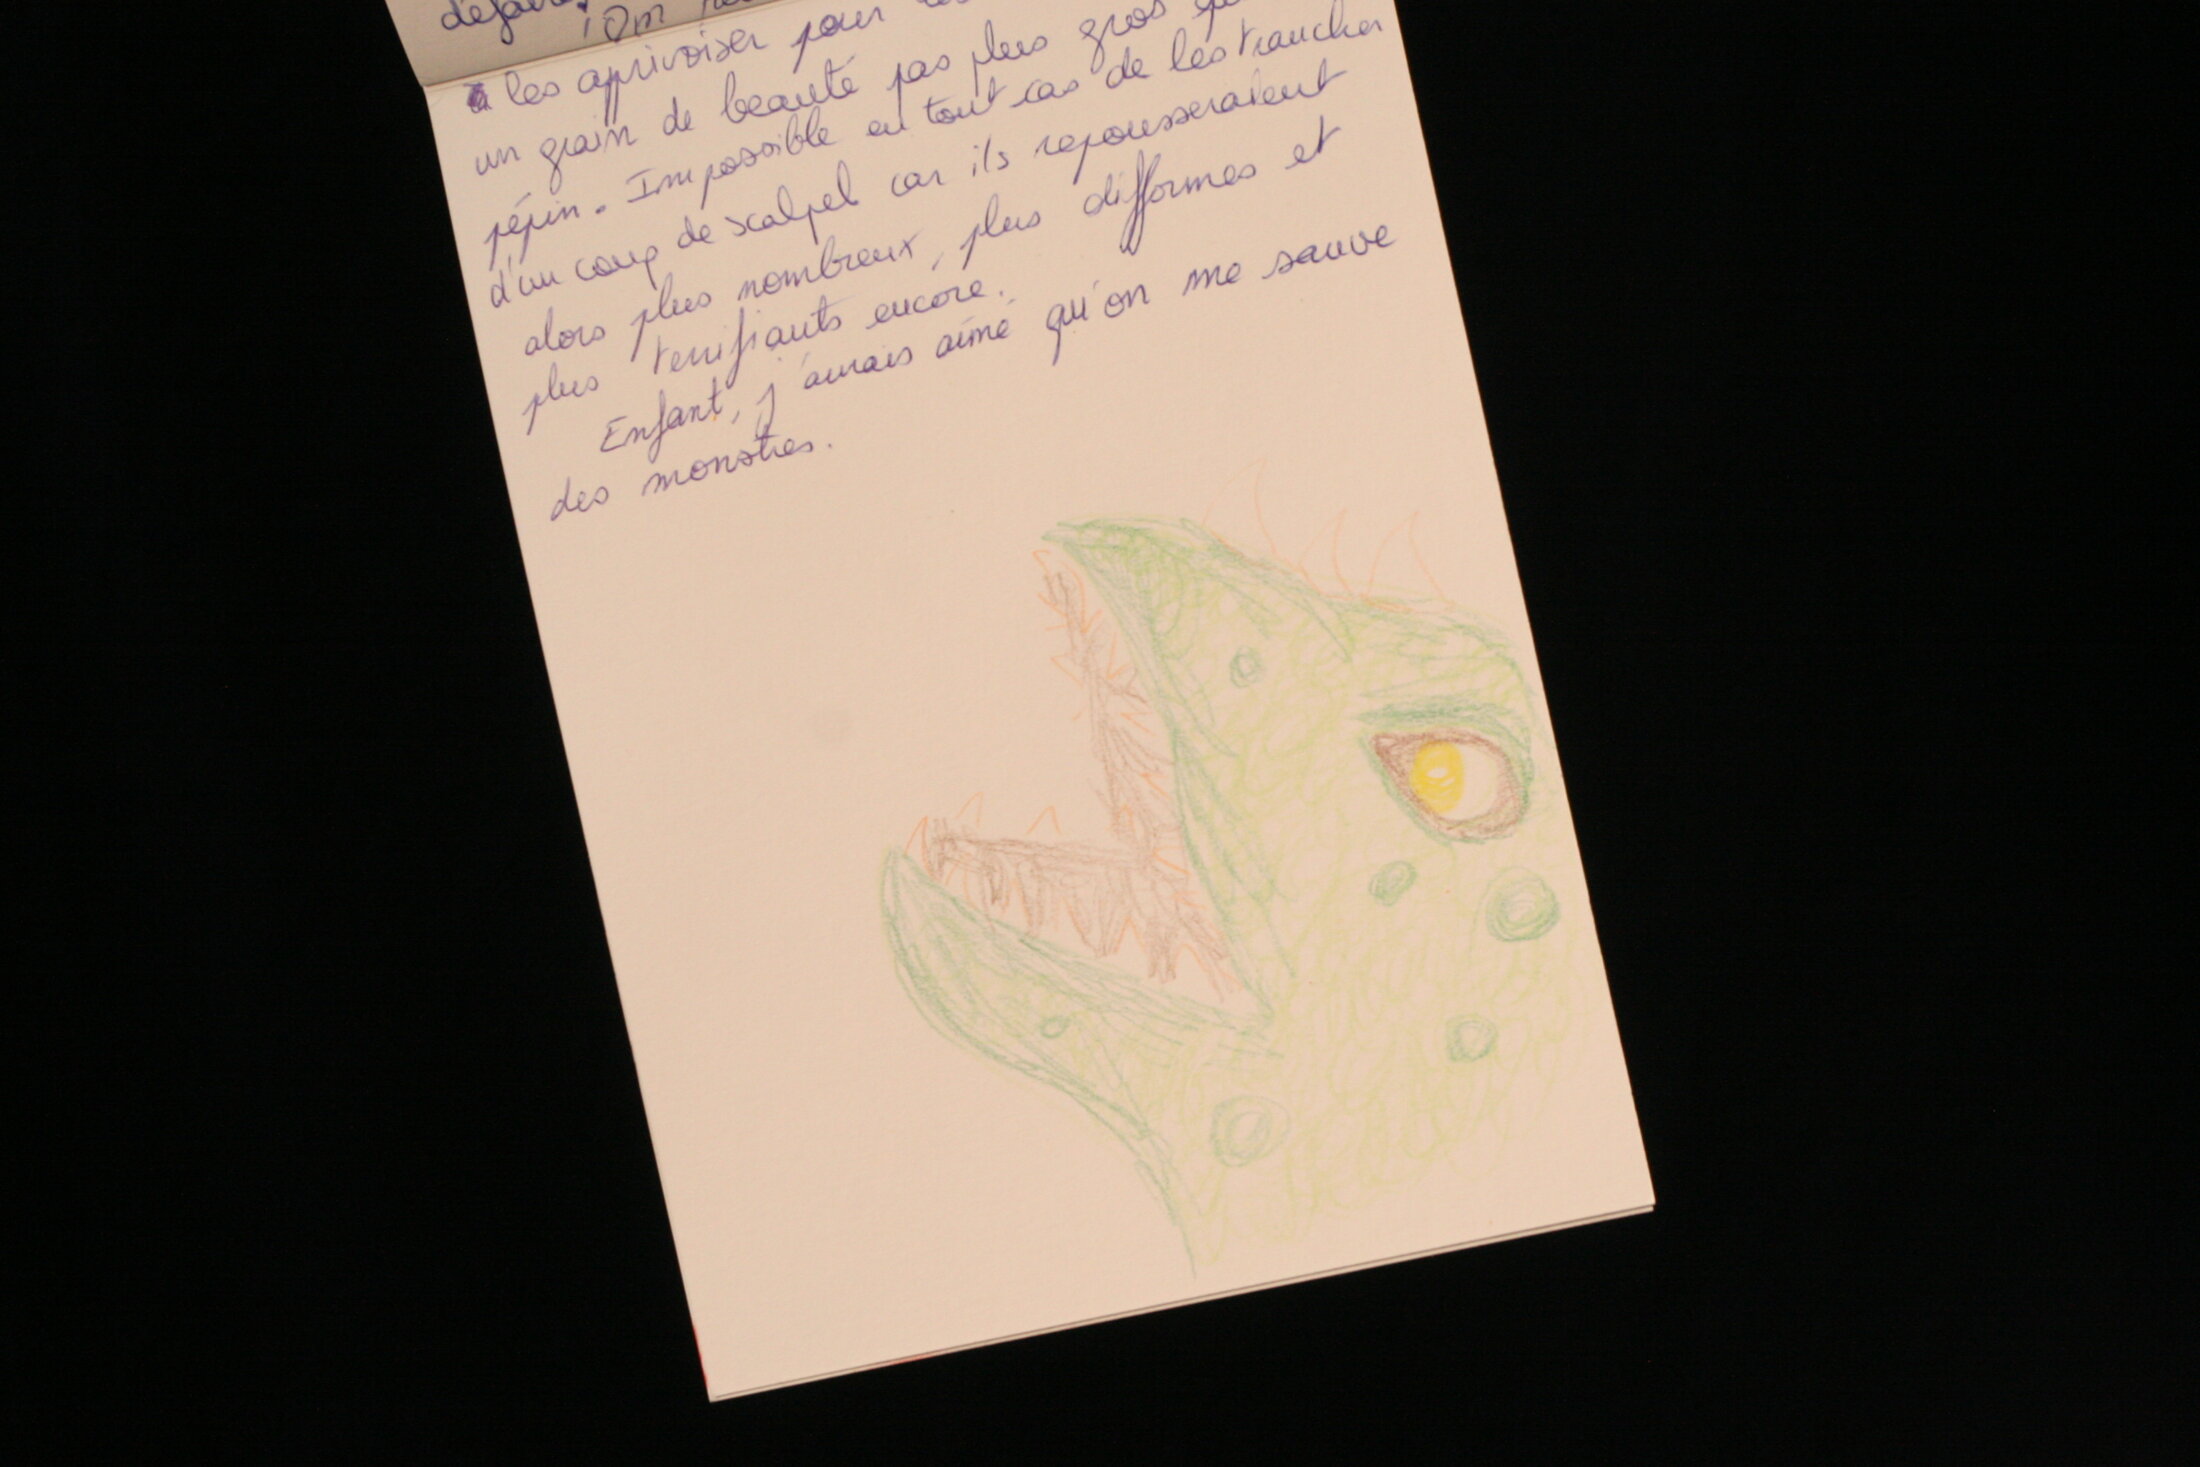 défaire
! On
à les apprivoiser pour
un grain de beauté pas plus gros
pépin. Impossible en tout cas de les trancher
d'un coup de scalpel car ils repousseraient
alors plus nombreux, plus difformes et
plus terrifiants encore.
Enfant, j'aurais aimé qu'on me sauve
des monstres.